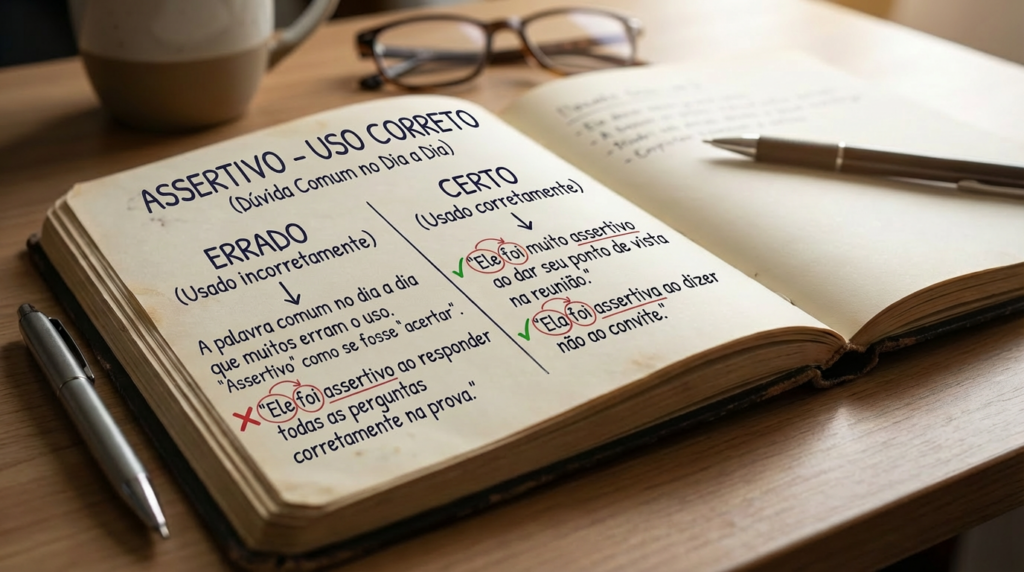 ASSERTIVO – USO CORRETO
(Dúvida Comum no Dia a Dia)
ERRADO
(Usado incorretamente)
A palavra comum no dia a dia
que muitos erram o uso.
"Assertivo" como se fosse "acertar".
"Ele foi assertivo ao responder
todas as perguntas
corretamente na prova."
CERTO
(Usado corretamente)
"Ele foi muito assertivo
ao dar seu ponto de vista
na reunião."
"Ela foi assertiva ao dizer
não ao convite."